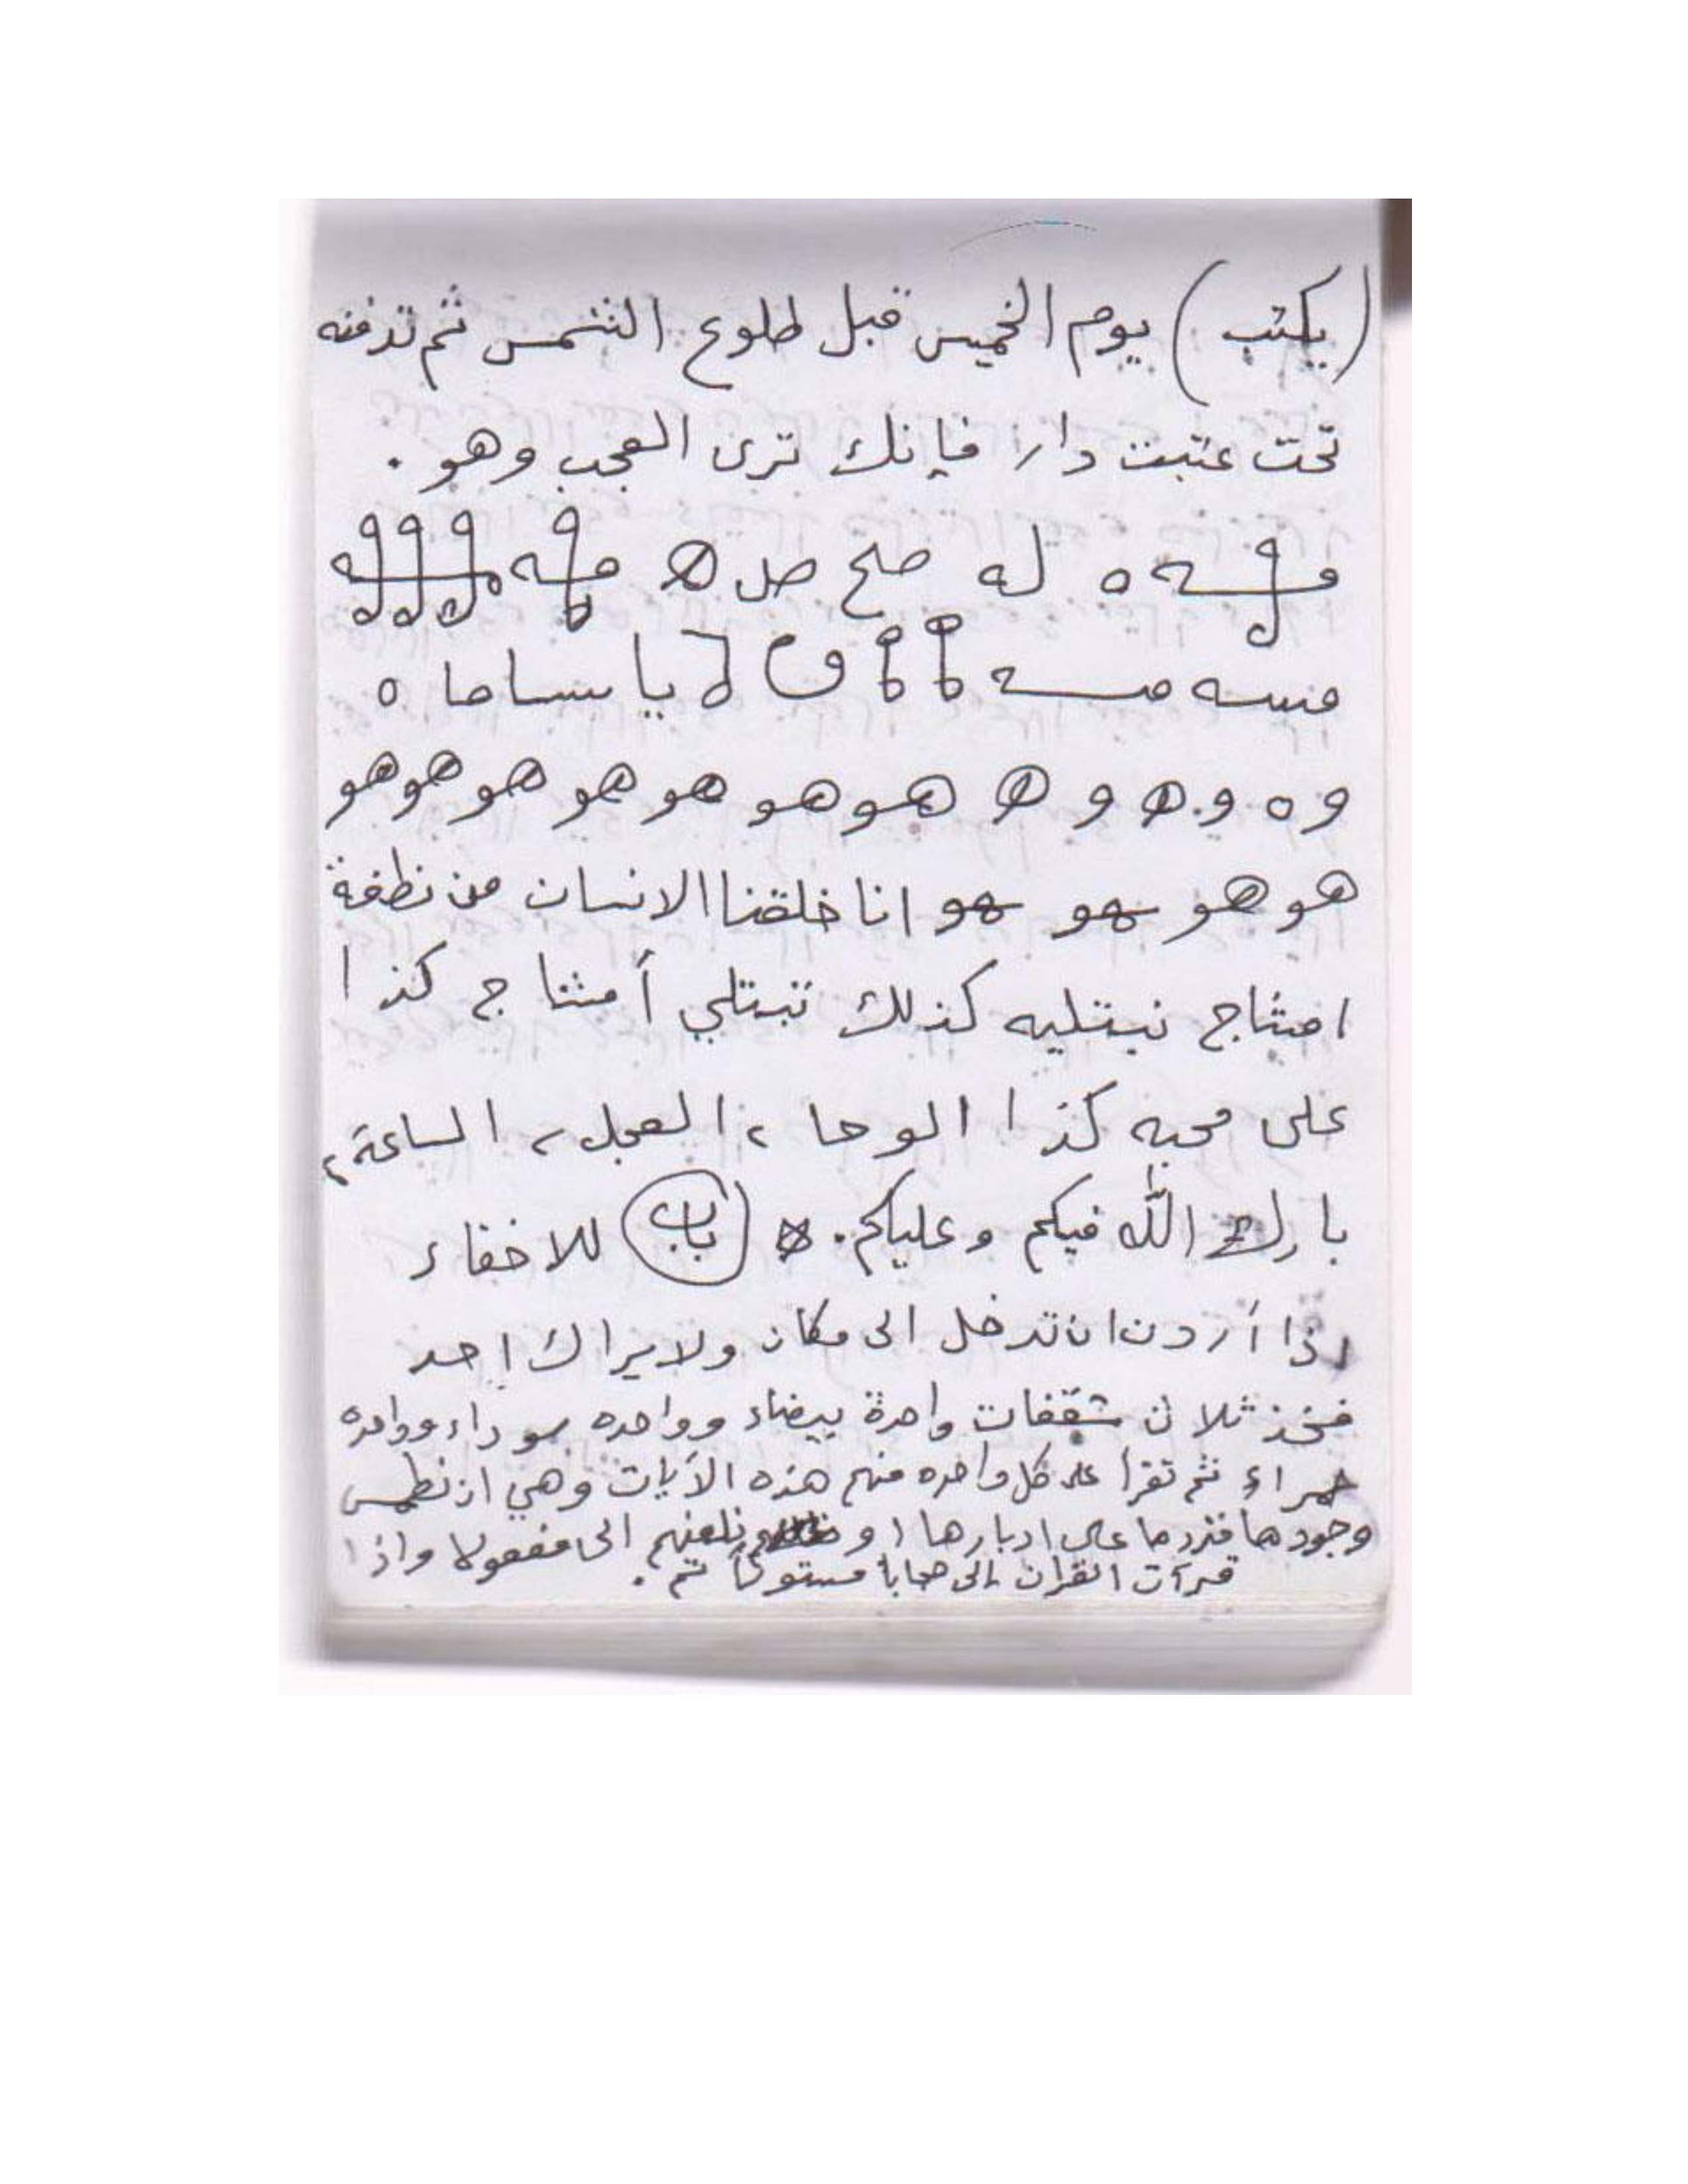 (يكتب) يوم الخميس قبل طلوع الشمس ثم تدفنه
تحت عتبت دار فإنك ترى العجب وهو .
ه له صح صل ھ
يا ساما ه
و ه و ھ و ھ هو هو هو هو هو هو هو
هو هو هو هو انا خلقنا الانسان من نطفة
امشاج نبتليه كذلك تبتلي أمشاج كذا
على محبه كذا الوحا ٢ العجل ٢ الساعة ٢
بارك الله فيكم وعليكم . (باب) للاخفاء
إذا أردت ان تدخل الى مكان ولا يراك احد
فخذ ثلاث شقفات واحدة بيضاء وواحده سوداء وواحده
حمراء ثم تقرأ على كل واحده منهم هذه الآيات وهي ان نطمس
وجوهها فنردها على ادبارها او نلعنهم الى مفعولا واذا
قرآت القران إلى حجابا مستوراً تم .